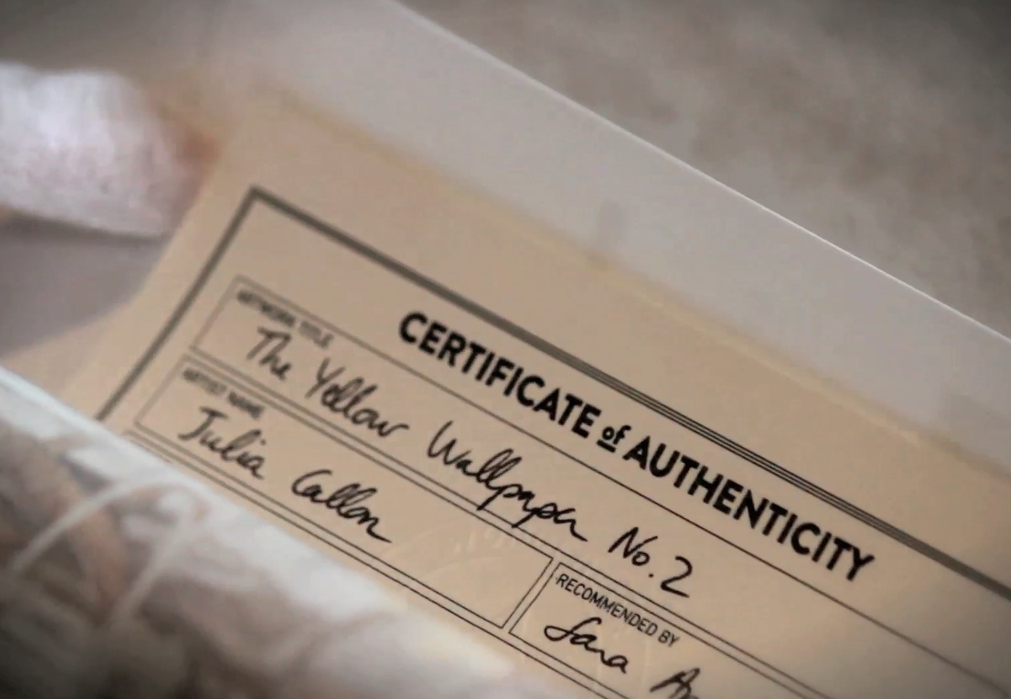 CERTIFICATE of AUTHENTICITY
ARTWORK TITLE
The Yellow Wallpaper No. 2
ARTIST NAME
Julia Callon
RECOMMENDED BY
Sara